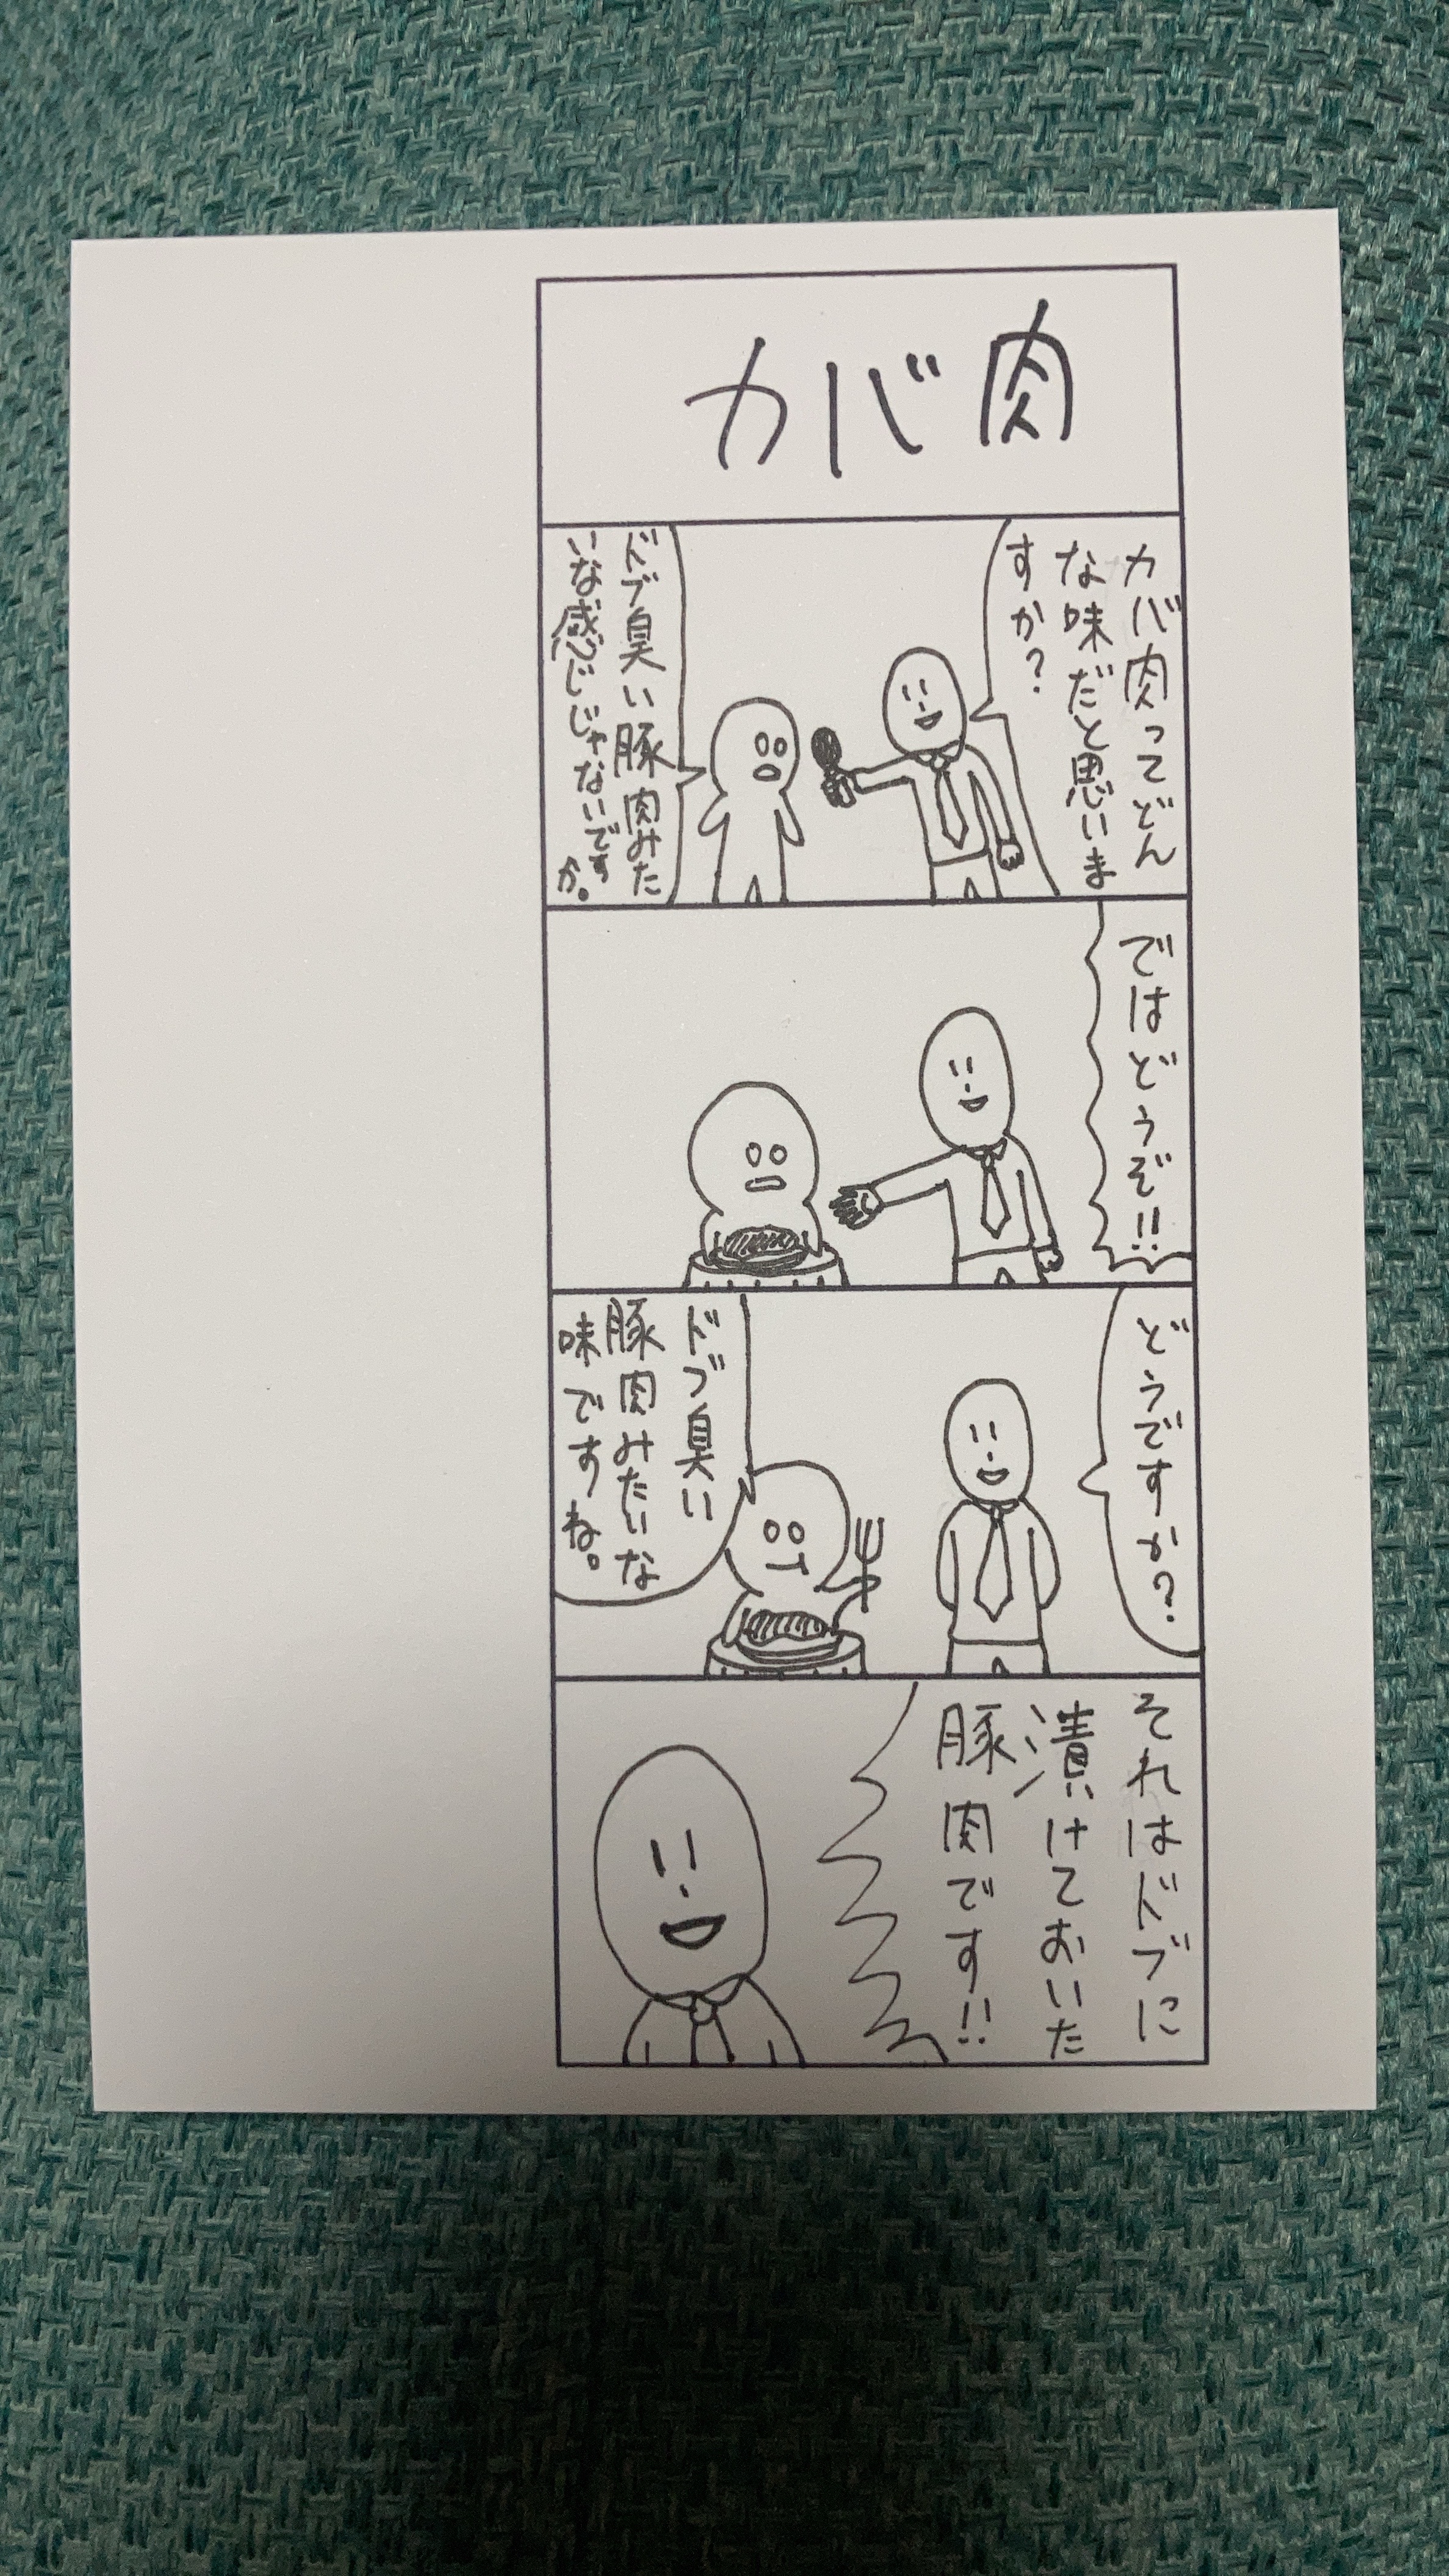 カバ肉
カバ肉ってどん
な味だと思いま
すか?
ドブ臭い豚肉みた
いな感じじゃないです
か。
ではどうぞ!!
どうですか?
ドブ臭い
豚肉みたいな
味ですね。
それはドブに
漬けておいた
豚肉です!!